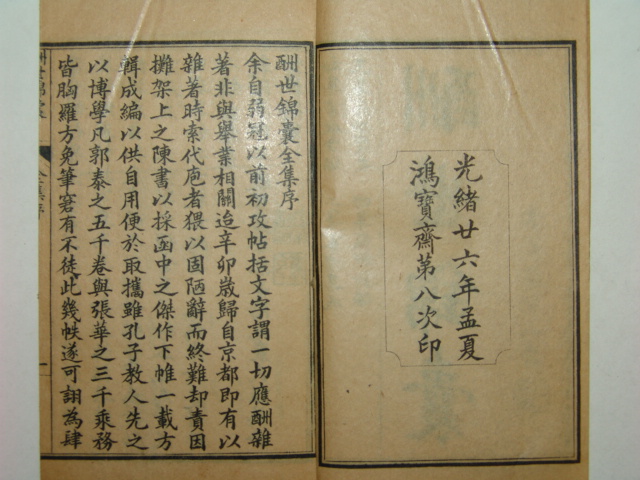 光緒廿六年孟夏
鴻寶齋第八次印
酬世錦囊全集序
余自弱冠以前初攻帖括文字謂一切應酬雜
著非與舉業相關迨辛卯歲歸自京都即有以
雜著時索代庖者猥以固陋辭而終難却責因
攤架上之陳書以採函中之傑作下帷一載方
輯成編以供自用便於取攜雖孔子教人先之
以博學凡郭泰之五千卷與張華之三千乘務
皆胸羅方免筆窘有不徒此幾帙遂可詡為肆
全集序